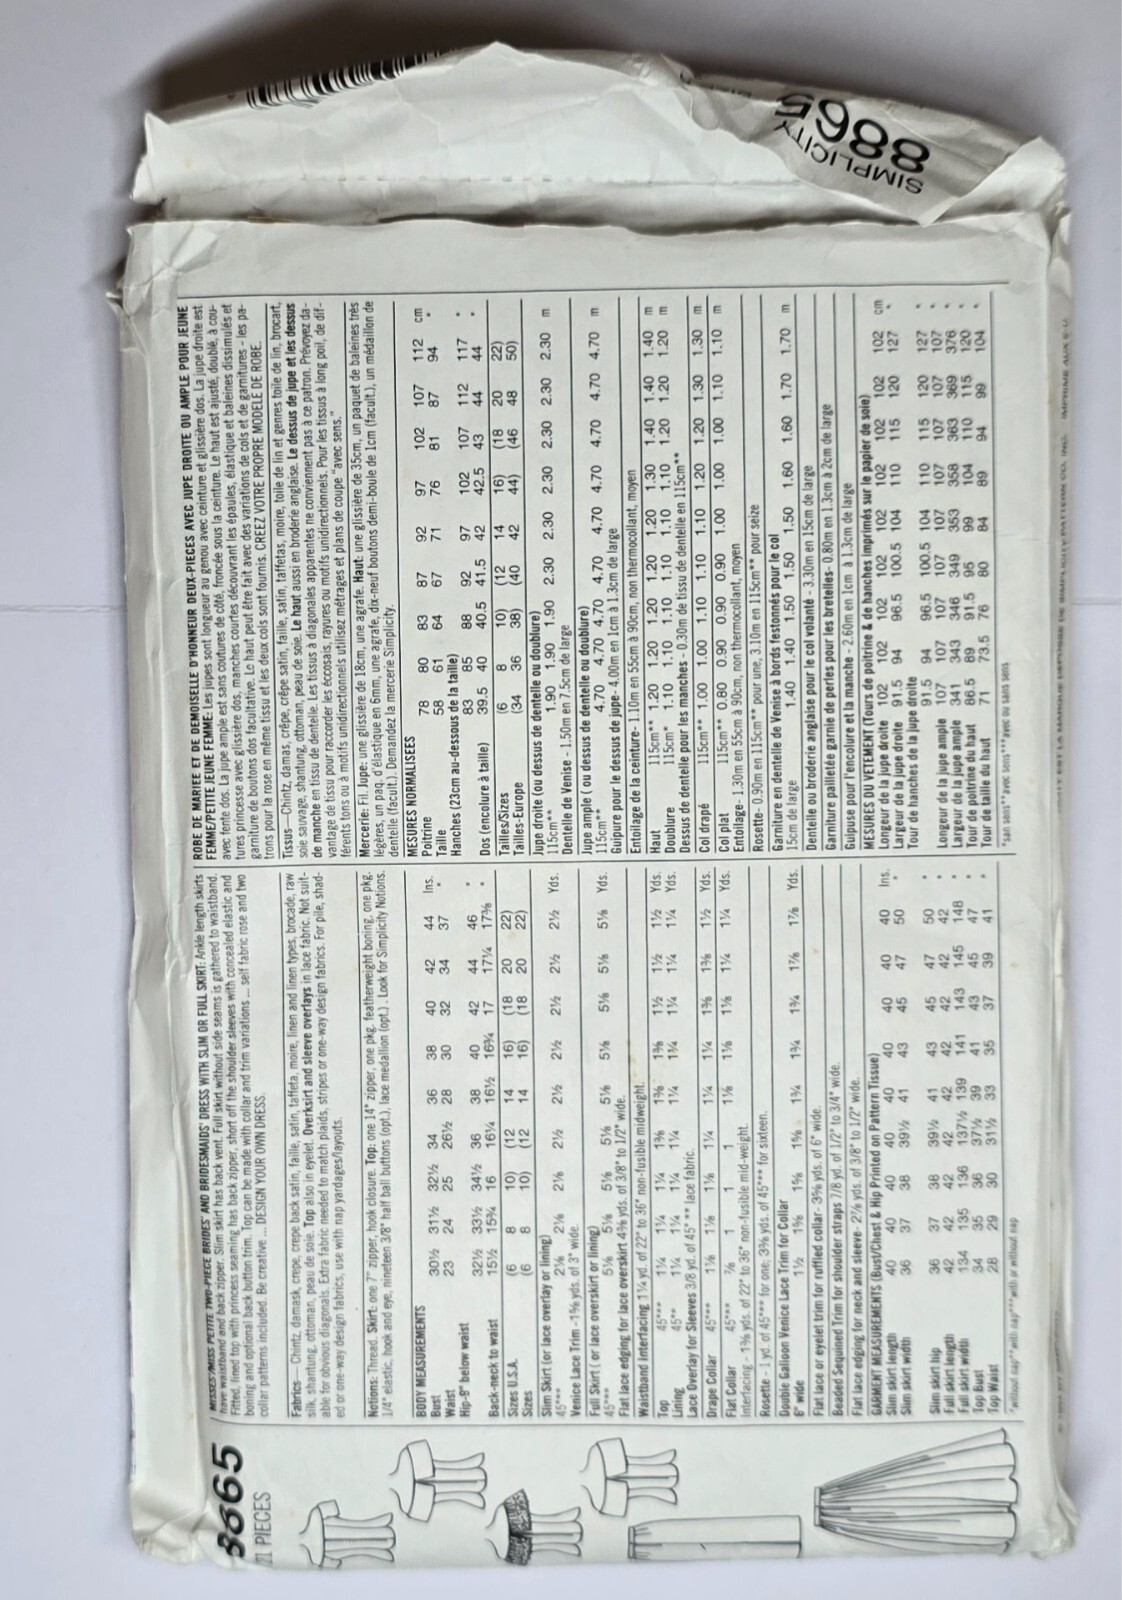 SIMPLICITY
8865
8865
21 PIECES
MISSES'/MISS PETITE TWO-PIECE BRIDES' AND BRIDESMAIDS' DRESS WITH SLIM OR FULL SKIRT: Ankle length skirts
have waistband and back zipper. Slim skirt has back vent. Full skirt without side seams is gathered to waistband.
Fitted, lined top with princess seaming has back zipper, short off the shoulder sleeves with concealed elastic and
boning and optional back button trim. Top can be made with collar and trim variations ... self fabric rose and two
collar patterns included. Be creative ... DESIGN YOUR OWN DRESS.
Fabrics—Chintz, damask, crepe, crepe back satin, faille, satin, taffeta, moire, linen and linen types, brocade, raw
silk, shantung, ottoman, peau de soie. Top also in eyelet. Overksirt and sleeve overlays in lace fabric. Not suit-
able for obvious diagonals. Extra fabric needed to match plaids, stripes or one-way design fabrics. For pile, shad-
ed or one-way design fabrics, use with nap yardages/layouts.
Notions: Thread. Skirt: one 7" zipper, hook closure. Top: one 14" zipper, one pkg. featherweight boning, one pkg.
1/4" elastic, hook and eye, nineteen 3/8" half ball buttons (opt.), lace medallion (opt.) . Look for Simplicity Notions.
BODY MEASUREMENTS
Bust 30½ 31½ 32½ 34 36 38 40 42 44 Ins.
Waist 23 24 25 26½ 28 30 32 34 37 "
Hip-8" below waist 32½ 33½ 34½ 36 38 40 42 44 46 "
Back-neck to waist 15½ 15¾ 16 16¼ 16½ 16¾ 17 17¼ 17⅜ "
Sizes U.S.A. (6 8 10) (12 14 16) (18 20 22)
Sizes (6 8 10) (12 14 16) (18 20 22)
Slim Skirt (or lace overlay or lining)
45"*** 2⅛ 2⅛ 2⅛ 2½ 2½ 2½ 2½ 2½ 2½ Yds.
Venice Lace Trim -1⅝ yds. of 3" wide.
Full Skirt ( or lace overskirt or lining)
45"*** 5⅛ 5⅛ 5⅛ 5⅛ 5⅛ 5⅛ 5⅛ 5⅛ 5⅛ Yds.
Flat lace edging for lace overskirt 4⅜ yds. of 3/8" to 1/2" wide.
Waistband Interfacing 1¼ yd. of 22" to 36" non-fusible midweight.
Top 45"*** 1¼ 1¼ 1¼ 1⅜ 1⅜ 1⅜ 1½ 1½ 1½ Yds.
Lining 45"** 1¼ 1¼ 1¼ 1¼ 1¼ 1¼ 1¼ 1¼ 1¼ Yds.
Lace Overlay for Sleeves 3/8 yd. of 45" ** lace fabric.
Drape Collar 45"*** 1⅛ 1⅛ 1⅛ 1¼ 1¼ 1¼ 1⅜ 1⅜ 1½ Yds.
Flat Collar 45"*** ⅞ 1 1 1 1⅛ 1⅛ 1⅛ 1¼ 1¼ Yds.
Interfacing - 1⅜ yds. of 22" to 36" non-fusible mid-weight.
Rosette - 1 yd. of 45"*** for one; 3⅜ yds. of 45"*** for sixteen.
Double Galloon Venice Lace Trim for Collar
6" wide 1½ 1⅝ 1⅝ 1⅝ 1¾ 1¾ 1¾ 1⅞ 1⅞ Yds.
Flat lace or eyelet trim for ruffled collar- 3⅝ yds. of 6" wide.
Beaded Sequined Trim for shoulder straps 7/8 yd. of 1/2" to 3/4" wide.
Flat lace edging for neck and sleeve- 2⅞ yds. of 3/8" to 1/2" wide.
GARMENT MEASUREMENTS (Bust/Chest & Hip Printed on Pattern Tissue)
Slim skirt length 40 40 40 40 40 40 40 40 40 Ins.
Slim skirt width 36 37 38 39½ 41 43 45 47 50 "
Slim skirt hip 36 37 38 39½ 41 43 45 47 50 "
Full skirt length 42 42 42 42 42 42 42 42 42 "
Full skirt width 134 135 136 137½ 139 141 143 145 148 "
Top Bust 34 35 36 37½ 39 41 43 45 47 "
Top Waist 28 29 30 31½ 33 35 37 39 41 "
*without nap**with nap***with or without nap
ROBE DE MARIEE ET DE DEMOISELLE D'HONNEUR DEUX-PIECES AVEC JUPE DROITE OU AMPLE POUR JEUNE
FEMME/PETITE JEUNE FEMME: Les jupes sont longueur au genou avec ceinture et glissière dos. La jupe droite est
avec fente dos. La jupe ample est sans coutures de côté, froncée sous la ceinture. Le haut est ajusté, doublé, à cou-
tures princesse avec glissière dos, manches courtes découvrant les épaules, élastique et baleines dissimulés et
garniture de boutons dos facultative. Le haut peut être fait avec des variations de cols et de garnitures - les pa-
trons pour la rose en même tissu et les deux cols sont fournis. CREEZ VOTRE PROPRE MODELE DE ROBE.
Tissus—Chintz, damas, crêpe, crêpe satin, faille, satin, taffetas, moire, toile de lin et genres toile de lin, brocart,
soie sauvage, shantung, ottoman, peau de soie. Le haut aussi en broderie anglaise. Le dessus de jupe et les dessus
de manche en tissu de dentelle. Les tissus à diagonales apparentes ne conviennent pas à ce patron. Prévoyez da-
vantage de tissu pour raccorder les écossais, rayures ou motifs unidirectionnels. Pour les tissus à long poil, de dif-
férents tons ou à motifs unidirectionnels utilisez métrages et plans de coupe "avec sens."
Mercerie: Fil. Jupe: une glissière de 18cm, une agrafe. Haut: une glissière de 35cm, un paquet de baleines très
légères, un paq. d'élastique en 6mm, une agrafe, dix-neuf boutons demi-boule de 1cm (facult.), un médaillon de
dentelle (facult.). Demandez la mercerie Simplicity.
MESURES NORMALISEES
Poitrine 78 80 83 87 92 97 102 107 112 cm
Taille 58 61 64 67 71 76 81 87 94 "
Hanches (23cm au-dessous de la taille)
83 85 88 92 97 102 107 112 117 "
Dos (encolure à taille) 39.5 40 40.5 41.5 42 42.5 43 44 44 "
Tailles/Sizes (6 8 10) (12 14 16) (18 20 22)
Tailles-Europe (34 36 38) (40 42 44) (46 48 50)
Jupe droite (ou dessus de dentelle ou doublure)
115cm** 1.90 1.90 1.90 2.30 2.30 2.30 2.30 2.30 2.30 m
Dentelle de Venise - 1.50m en 7.5cm de large
Jupe ample ( ou dessus de dentelle ou doublure)
115cm** 4.70 4.70 4.70 4.70 4.70 4.70 4.70 4.70 4.70 m
Guipure pour le dessus de jupe- 4.00m en 1cm à 1.3cm de large
Entoilage de la ceinture- 1.10m en 55cm à 90cm, non thermocollant, moyen
Haut 115cm** 1.20 1.20 1.20 1.20 1.20 1.30 1.40 1.40 1.40 m
Doublure 115cm* 1.10 1.10 1.10 1.10 1.10 1.10 1.20 1.20 1.20 m
Dessus de dentelle pour les manches - 0.30m de tissu de dentelle en 115cm**
Col drapé 115cm** 1.00 1.00 1.10 1.10 1.10 1.20 1.20 1.30 1.30 m
Col plat 115cm** 0.80 0.90 0.90 0.90 1.00 1.00 1.00 1.10 1.10 m
Entoilage- 1.30m en 55cm à 90cm, non thermocollant, moyen
Rosette- 0.90m en 115cm** pour une, 3.10m en 115cm** pour seize
Garniture en dentelle de Venise à bords festonnés pour le col
15cm de large 1.40 1.40 1.50 1.50 1.50 1.60 1.60 1.70 1.70 m
Dentelle ou broderie anglaise pour le col volanté - 3.30m en 15cm de large
Garniture pailletée garnie de perles pour les bretelles- 0.80m en 1.3cm à 2cm de large
Guipuse pour l'encolure et la manche - 2.60m en 1cm à 1.3cm de large
MESURES DU VETEMENT (Tours de poitrine & de hanches imprimés sur le papier de soie)
Longeur de la jupe droite 102 102 102 102 102 102 102 102 102 cm
Largeur de la jupe droite 91.5 94 96.5 100.5 104 110 115 120 127 "
Tour de hanches de la jupe droite
91.5 94 96.5 100.5 104 110 115 120 127 "
Longeur de la jupe ample 107 107 107 107 107 107 107 107 107 "
Largeur de la jupe ample 341 343 346 349 353 358 363 369 376 "
Tour de poitrine du haut 86.5 89 91.5 95 99 104 110 115 120 "
Tour de taille du haut 71 73.5 76 80 84 89 94 99 104 "
*san sens**avec sens ***avec ou sans sens